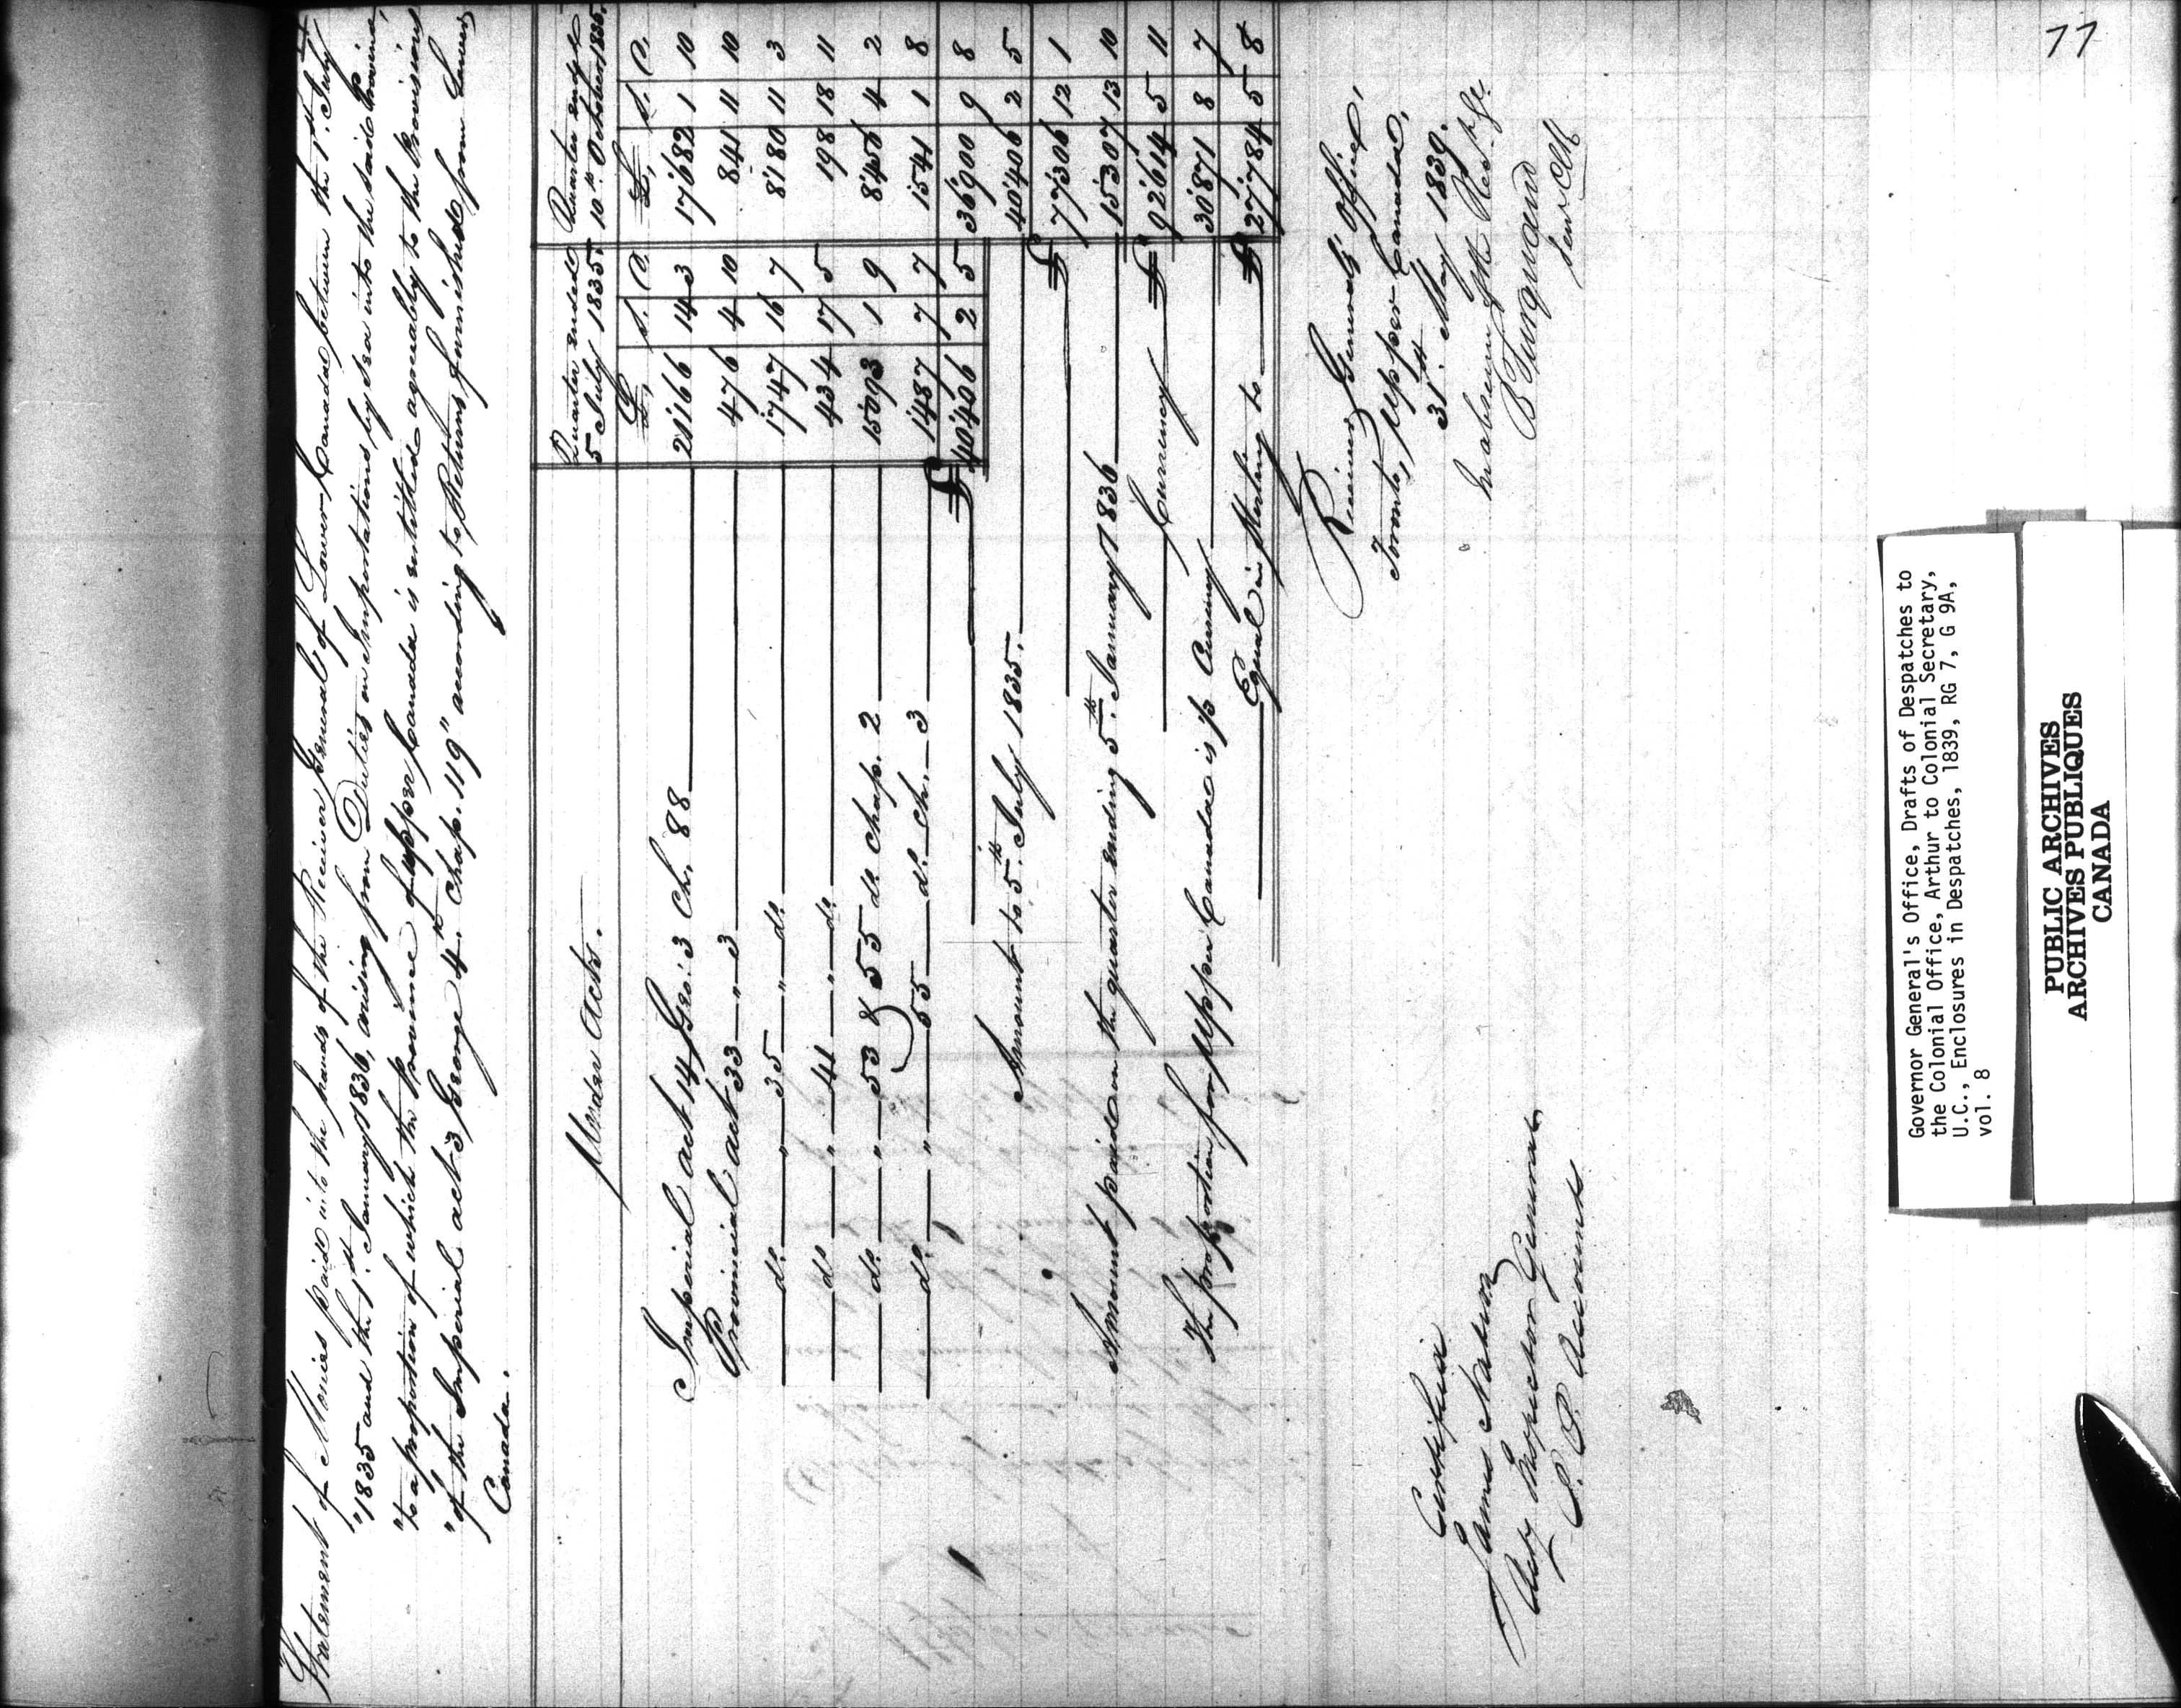 "Statement of Monies paid into the hands of the Receiver General of Lower Canada between the 1st July
"1835 and the 1st January 1836, arising from Duties on Importations by sea into the said Province,
"to a proportion of which the Province of Upper Canada is entitled agreeably to the provisions
"of the Imperial act 3 George 4th Chap. 119" according to Returns furnished from Lower
Canada.
Under Acts.
Quarter ended 5 July 1835
Quarter ended 10th October, 1835.
£. s. d. £. s. d.
Imperial act 14 Geo: 3 Ch. 88 21'166 14 3 17'682 1 10
Provincial act 33 " 3 476 4 10 841 11 10
do. " 35 " do. 1'747 16 7 8'180 11 3
do. " 41 " do. 434 17 5 198 18 11
do. " 53 & 55 do. chap. 2 15'093 1 9 8'456 4 2
do. " 55 do. ch. 3 1'487 7 7 1'541 1 8
£ 40'406 2 5 36'900 9 8
Amount to 5th July 1835. 40'406 2 5
£ 77'306 12 1
Amount paid on the quarter ending 5th January 1836 15'307 13 10
Currency £ 92'614 5 11
The proportion for Upper Canada is ⅓ Currency 30'871 8 7
Equal in Sterling to £ 27'784 5 8
Receiver General's Office,
Toronto, Upper Canada,
31st May 1839.
In absence of the Rec. Gl.
B Turquand
Senr Clk
Certified
James Nation
Acty Inspector General
P. P. Accounts
77
Governor General's Office, Drafts of Despatches to
the Colonial Office, Arthur to Colonial Secretary,
U.C., Enclosures in Despatches, 1839, RG 7, G 9A,
vol. 8
PUBLIC ARCHIVES
ARCHIVES PUBLIQUES
CANADA